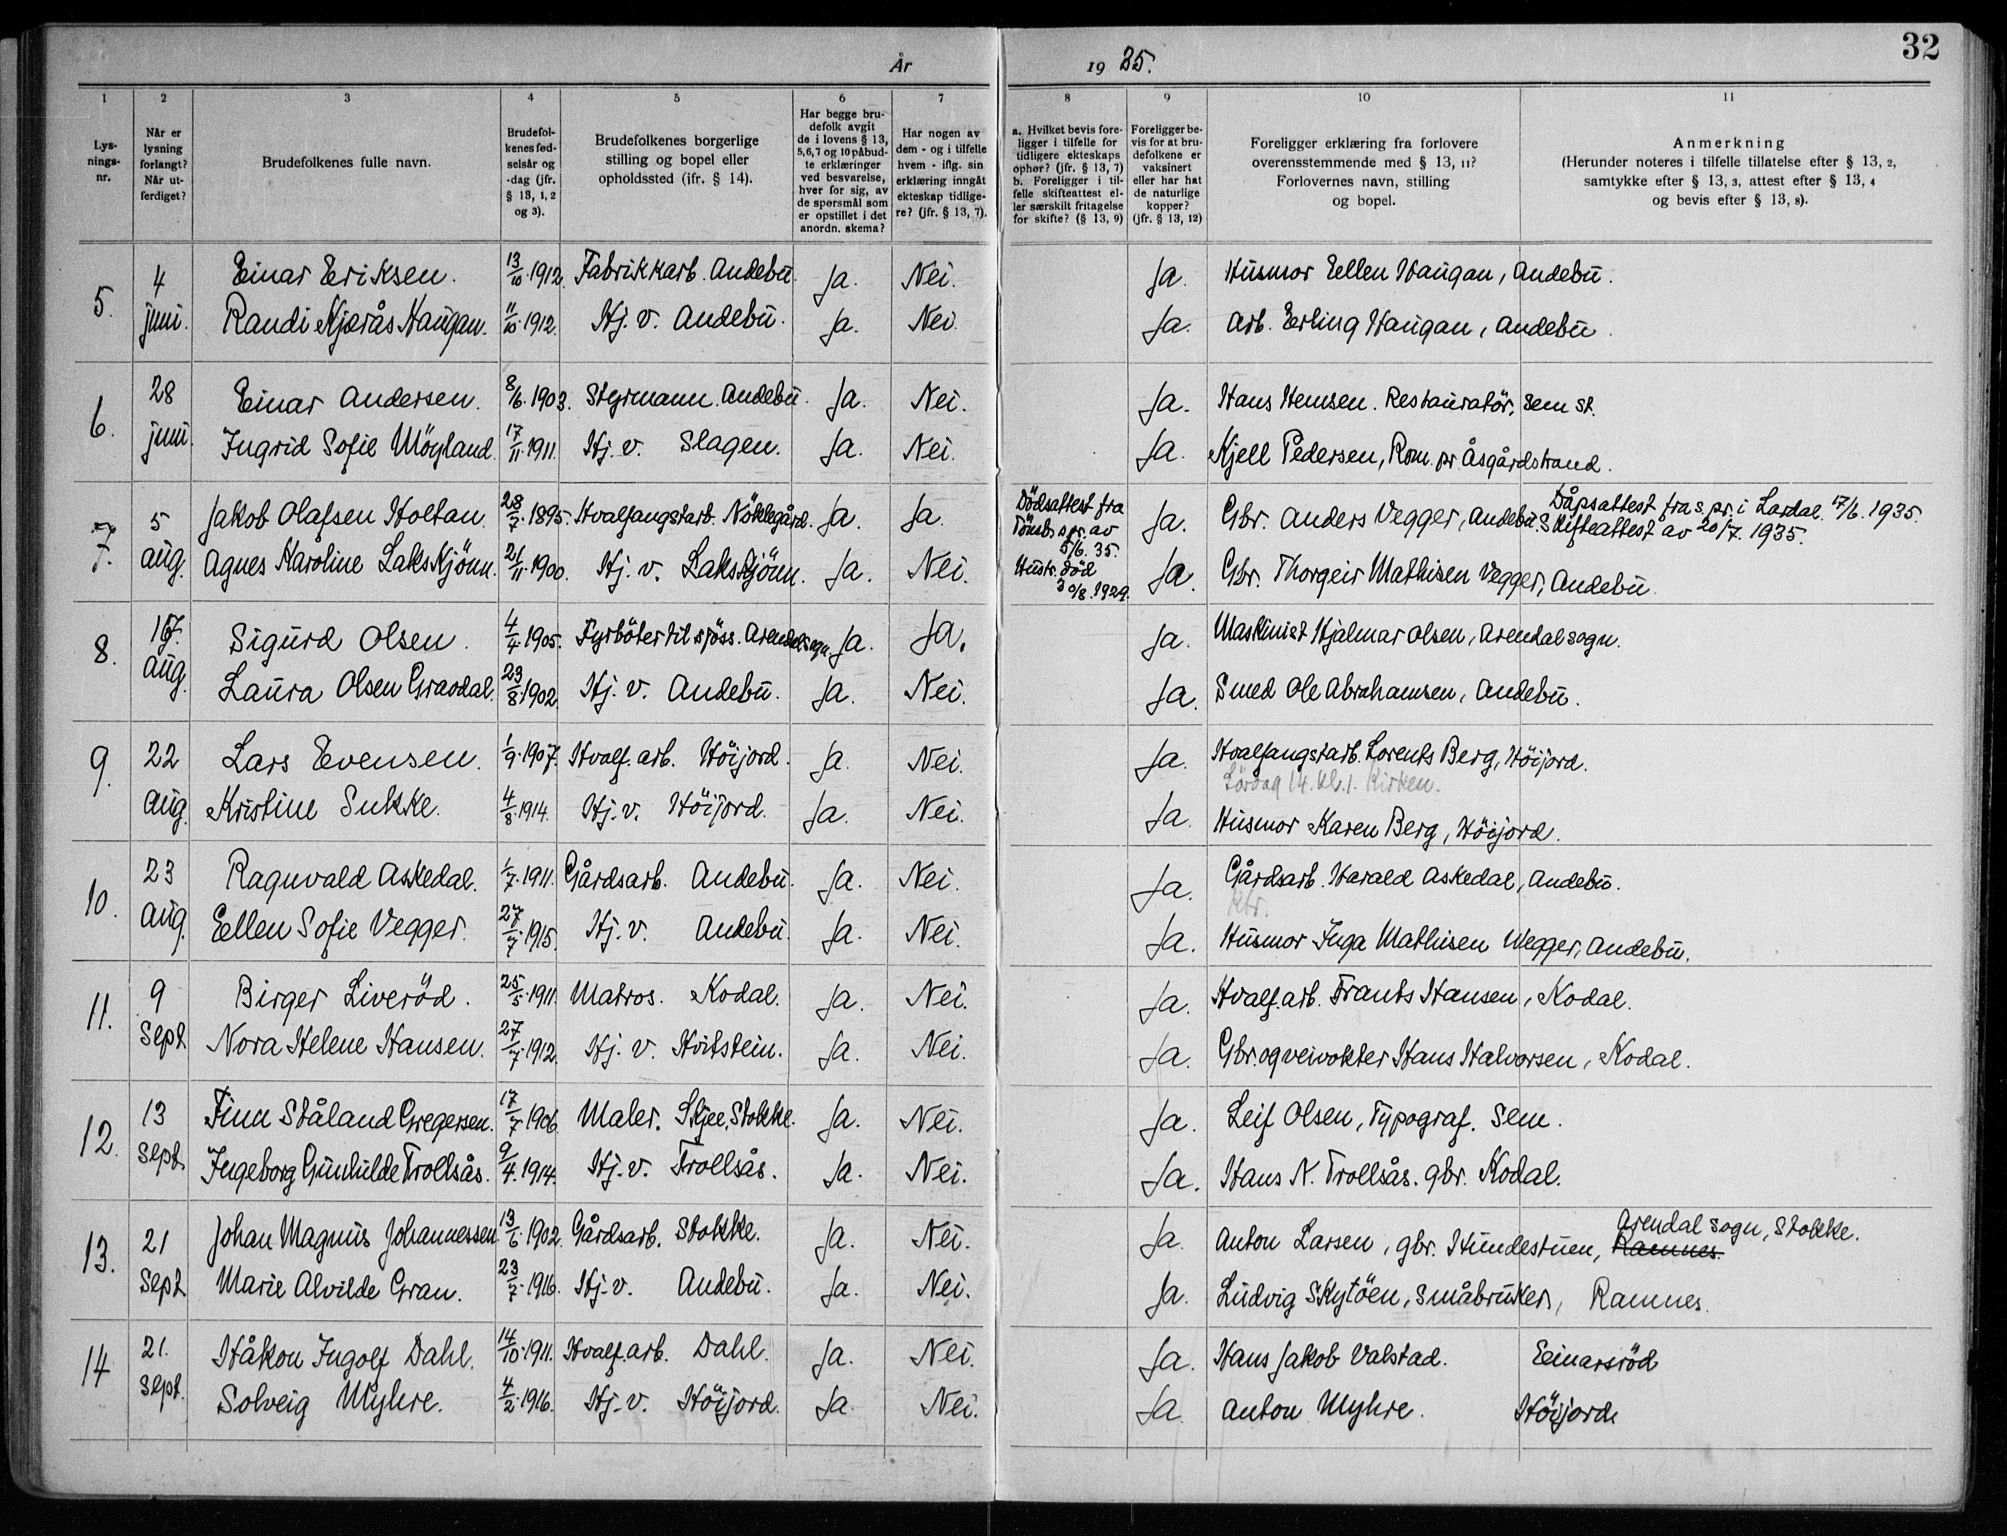 År 1935.
32
1 2 3 4 5 6 7 8 9 10 11
Lys-
nings-
nr.
Når er
lysning
forlangt?
Når ut-
ferdiget?
Brudefolkenes fulle navn.
Brudefol-
kenes fød-
selsår og
-dag (jfr.
§ 13, 1, 2
og 3).
Brudefolkenes borgerlige
stilling og bopel eller
opholdssted (ifr. § 14).
Har begge bru-
defolk avgit
de i lovens § 13,
5, 6, 7 og 10 påbud-
te erklæringer
ved besvarelse,
hver for sig, av
de spørsmål som
er opstillet i det
anordn. skema?
Har nogen av
dem - og i tilfelle
hvem - iflg. sin
erklæring inngåt
ekteskap tidlige-
re? (jfr. § 13, 7).
a. Hvilket bevis fore-
ligger i tilfelle for
tidligere ekteskaps
ophør? (jfr. § 13, 7)
b. Foreligger i til-
felle skifteattest el-
ler særskilt fritagelse
for skifte? (§ 13, 9)
Foreligger be-
vis for at bru-
defolkene er
vaksinert
eller har hat
de naturlige
kopper?
(jfr. § 13, 12)
Foreligger erklæring fra forlovere
overensstemmende med § 13, 11?
Forlovernes navn, stilling
og bopel.
Anmerkning
(Herunder noteres i tilfelle tillatelse efter § 13, 2,
samtykke efter § 13, 3, attest efter § 13, 4
og bevis efter § 13, 8).
5. 4 Einar Eriksen. 13/10.1912. Fabrikkarb. Andebu. Ja. Nei. Ja. Husmor Eellen Haugan, Andebu.
juni. Randi Kjærås Haugan. 11/10.1912. Hj. v. Andebu. Ja. Nei. Ja. Arb. Erling Haugan, Andebu.
6. 28 Einar Andersen. 8/6.1903. Styrmann. Andebu. Ja. Nei. Ja. Hans Hemsen. Restauratör, Sem st.
juni Ingrid Sofie Möyland. 17/11.1911. Hj. v. Slagen. Ja. Nei. Ja. Kjell Pedersen, Rom. pr Åsgårdstrand.
7. 5 Jakob Olafsen Holtan. 28/7.1895. Hvalfangstarb. Nöklegård. Ja. Ja. Dödsattest fra
Tönsb. s.pr. av
5/6.35.
Ja. Gbr. Anders Vegger, Andebu. Dåpsattest fra s.pr. i Lardal. 17/6.1935.
Skifteattest av 20/7.1935.
7. aug. Agnes Karoline Lakskjönn. 21/11.1900. Hj. v. Lakskjönn. Ja. Nei. Hustr. död
30/8.1929.
Ja Gbr. Thorgeir Mathisen Vegger, Andebu.
8. 167. Sigurd Olsen. 4/4.1905. Fyrböter til sjöss. Arendal sogn. Ja. Ja. Ja. Maskinist Hjalmar Olsen, Arendal sogn.
aug. Laura Olsen Graodal. 23/8.1902. Hj. v. Andebu. Ja. Nei. Ja. Smed Ole Abrahamsen, Andebu.
9. 22 Lars Evensen. 1/9.1907. Hvalf. arb. Höijord. Ja. Nei. Ja. Hvalfangstarb. Lorents Berg, Höijord.
Lördag 14. kl. 1. Kirken.
aug. Kristine Sukke. 4/8.1914. Hj. v. Höijord. Ja. Nei. Ja. Husmor Karen Berg, Höijord.
10. 23 Ragnvald Askedal. 1/7.1911. Gårdsarb. Andebu. Ja. Nei. Ja. Gårdsarb. Harald Askedal, Andebu.
aug. Eellen Sofie Vegger. 27/7.1915. Hj. v. Andebu. Ja. Nei. Ja. Husmor Inga Mathisen Vegger, Andebu.
11. 9 Birger Liveröd. 25/5.1911. Matros. Kodal. Ja. Nei. Ja. Hvalf.arb. Frants Hansen, Kodal.
sept Nora Helene Hansen. 27/7.1912. Hj. v. Hvitstein. Ja. Nei. Ja. Gbr. og veivokter Hans Halvorsen, Kodal.
12. 13 Finn Ståland Gregersen. 17/7.1906. Maler. Skjee, Stokke. Ja. Nei. Ja. Leif Olsen, Typograf. Sem.
sept. Ingeborg Gunhilde Trollsås. 9/4.1914. Hj. v. Trollsås. Ja. Nei. Ja. Hans N. Trollsås. gbr. Kodal.
13. 21 Johan Magnus Johannessen. 13/6.1902. Gårdsarb. Stokke. Ja. Nei. Ja. Anton Larsen, gbr. Hundestuen, Ramnes. Arendal sogn, Stokke.
sept Marie Alvilde Gran. 23/7.1916. Hj. v. Andebu. Ja. Nei. Ja. Ludvig Skytöen, småbruker, Ramnes.
14 21. Håkon Ingolf Dahl. 14/10.1911. Hvalf.arb. Dahl. Ja. Nei. Ja. Hans Jakob Valstad. Eeinarsröd
sept. Solveig Myhre. 4/2.1916. Hj. v. Höijord. Ja. Nei. Ja. Anton Myhre. Höijord